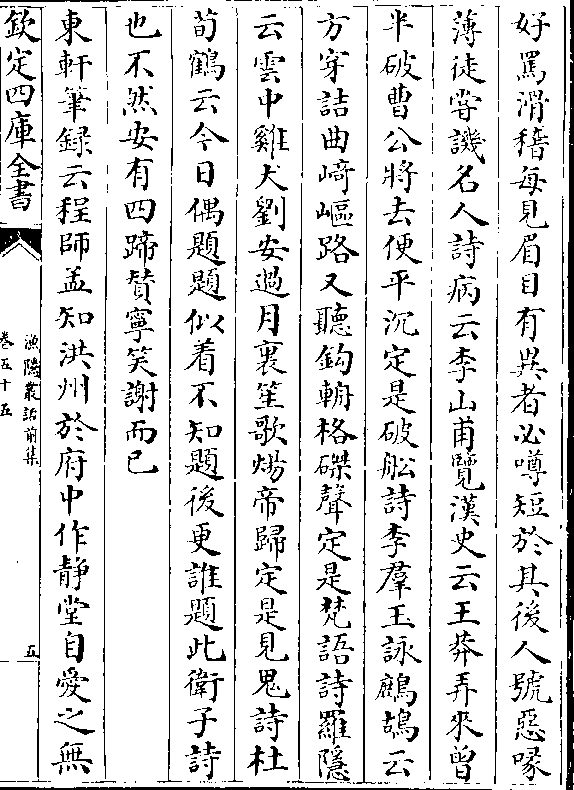 好罵滑稽每見眉目有異者必噂短於其後人號惡喙
薄徒嘗譏名人詩病云李山甫覽漢史云王莽弄來曾
半破曹公將去便平沉定是破舩詩李羣玉詠鷓鴣云
方穿詰曲崎嶇路又聽鈎輈格磔聲定是梵語詩羅隱
云雲中雞犬劉安過月裏笙歌煬帝歸定是見鬼詩杜
荀鶴云今日偶題題似着不知題後更誰題此衛子詩
也不然安有四蹄賛寧笑謝而已
東軒筆録云程師孟知洪州於府中作靜堂自愛之無
欽定四庫全書
漁隱叢話前集
卷五十五
五